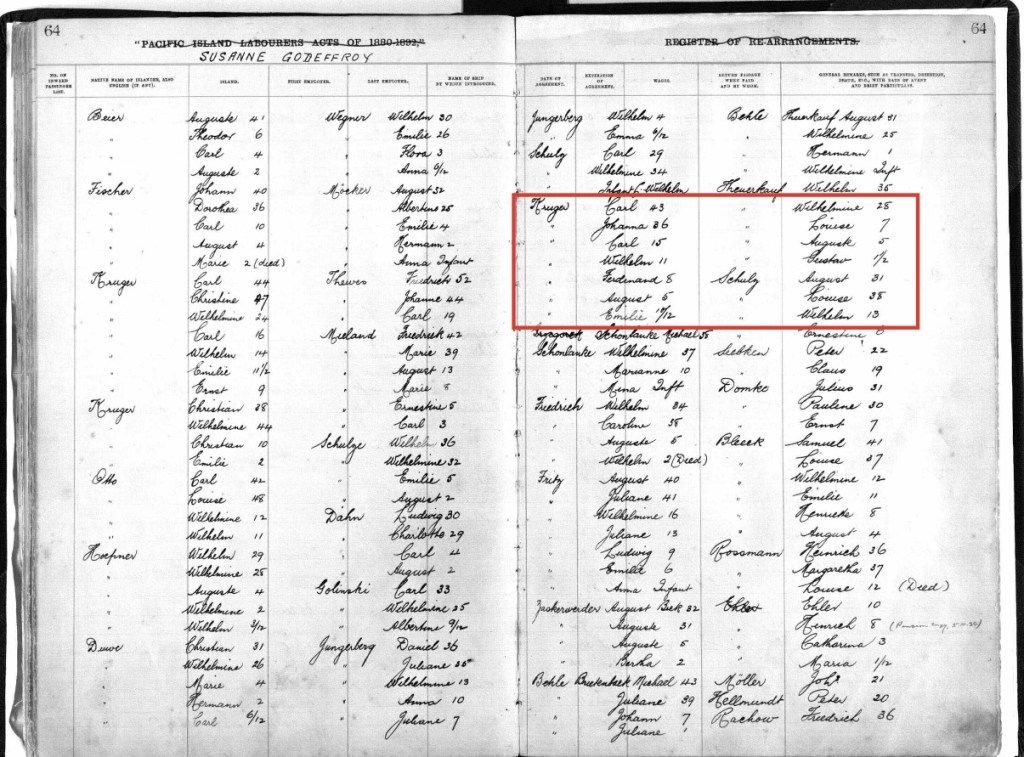 64
"PACIFIC ISLAND LABOURERS ACTS OF 1880-1892,"
SUSANNE GODEFFROY
NO. OF INWARD PASSENGER LIST.
NATIVE NAME OF ISLANDER, ALSO ENGLISH (IF ANY).
ISLAND.
FIRST EMPLOYER.
LAST EMPLOYER.
NAME OF SHIP BY WHICH INTRODUCED.
Beier Auguste 41 Wegner Wilhelm 30
" Theodor 6 " Emilie 26
" Carl 4 " Flora 3
" Auguste 2 " Anna 6/12
Fischer Johann 40 Mocker August 32
" Dorothea 36 " Albertine 25
" Carl 10 " Emilie 4
" August 4 " Hermann 2
" Marie 2 (died) " Anna Infant
Kruger Carl 44 Thewes Friedrich 52
" Christine 47 " Johanne 44
" Wilhelmine 24 " Carl 19
" Carl 16 Mieland Friedrich 42
" Wilhelm 14 " Marie 39
" Emilie 11/2 " August 13
" Ernst 9 " Marie 8
Kruger Christian 38 " Ernestine 5
" Wilhelmine 44 " Carl 3
" Christian 10 Schulze Wilhelm 36
" Emilie 2 " Wilhelmine 32
Otto Carl 42 " Emilie 5
" Louise 48 " August 2
" Wilhelmine 12 Dahn Ludwig 30
" Wilhelm 11 " Charlotte 29
Hoepner Wilhelm 29 " Carl 4
" Wilhelmine 28 " August 2
" Auguste 4 Golinski Carl 33
" Wilhelmine 2 " Wilhelmine 25
" Wilhelm 3/12 " Albertine 9/12
Duwe Christian 31 Jungerberg Daniel 36
" Wilhelmine 26 " Juliane 35
" Marie 4 " Wilhelmine 13
" Hermann 2 " Anna 10
" Carl 6/12 " Juliane 7
64
REGISTER OF RE-ARRANGEMENTS.
DATE OF AGREEMENT.
EXPIRATION OF AGREEMENT.
WAGES.
RETURN PASSAGE WHEN PAID AND BY WHOM.
GENERAL REMARKS, SUCH AS TRANSFER, DESERTION, DEATH, ETC., WITH DATE OF EVENT AND BRIEF PARTICULARS.
Jungerberg Wilhelm 4 Behle Thuerkauf August 31
" Emma 6/12 " Wilhelmine 25
Schulz Carl 29 " Hermann 1
" Wilhelmine 34 " Wilhelmine Inft
" Infant Wilhelm Theuerkauf Wilhelm 35
Kruger Carl 43 " Wilhelmine 28
" Johanna 36 " Louise 7
" Carl 15 " Auguste 5
" Wilhelm 11 " Gustav 1/2
" Ferdinand 8 Schulz August 31
" August 5 " Louise 38
" Emilie 11/12 " Wilhelm 13
Schonlanke Michael 35 " Ernestine 6
Schonlanke Wilhelmine 37 Siebken Peter 22
" Marianne 10 " Claus 19
" Mina Inft Domke Julius 31
Friedrich Wilhelm 34 " Pauline 30
" Caroline 38 " Ernst 7
" Auguste 5 Bleeck Samuel 41
" Wilhelm 2 (Died) " Louise 37
Fritz August 40 " Wilhelmine 12
" Juliane 41 " Emilie 11
" Wilhelmine 16 " 8
" Juliane 13 " August 4
" Ludwig 9 Rossmann Heinrich 36
" Emilie 6 " Margaretha 37
" Anna Infant " Louise 12 (Died)
Zaskerwerder August 32 Ehlers Ehler 10
" Auguste 31 " Hinrich 8
" Auguste 5 " Catharina 3
" Bertha 2 " Maria 1/2
Behle Michael 43 Möller Johs 21
" Juliane 39 Hellmundt Peter 20
" Johann 7 Rachow Friedrich 36
" Juliane 1